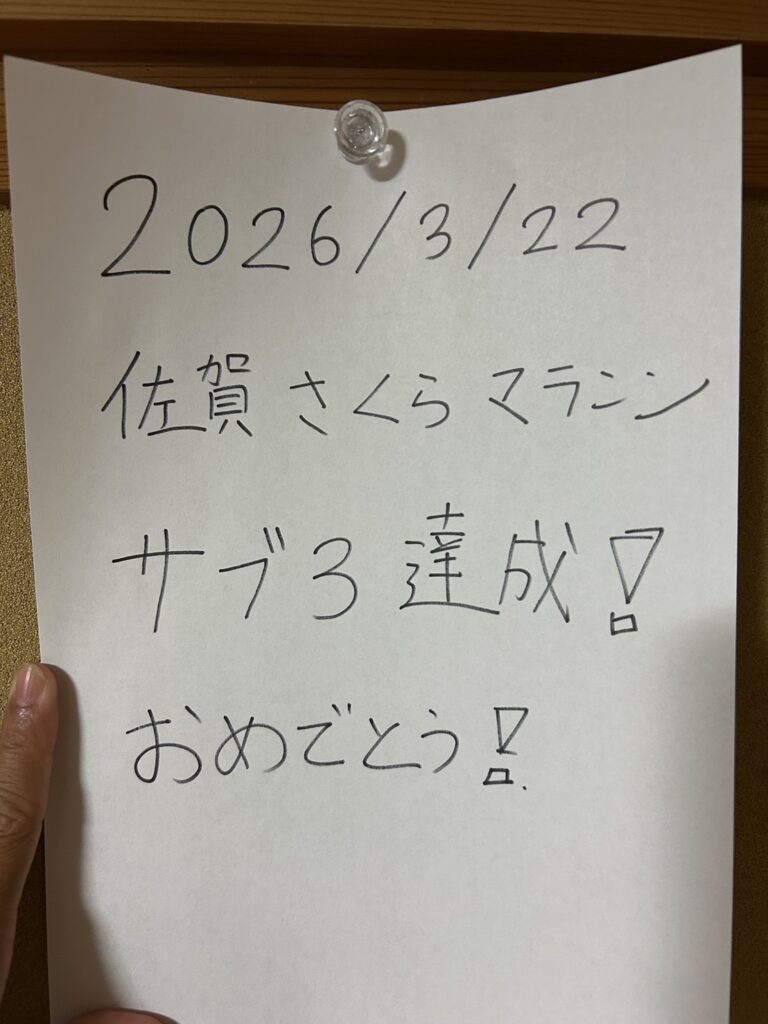 2026/3/22
佐賀さくらマラソン
サブ3達成!
おめでとう!